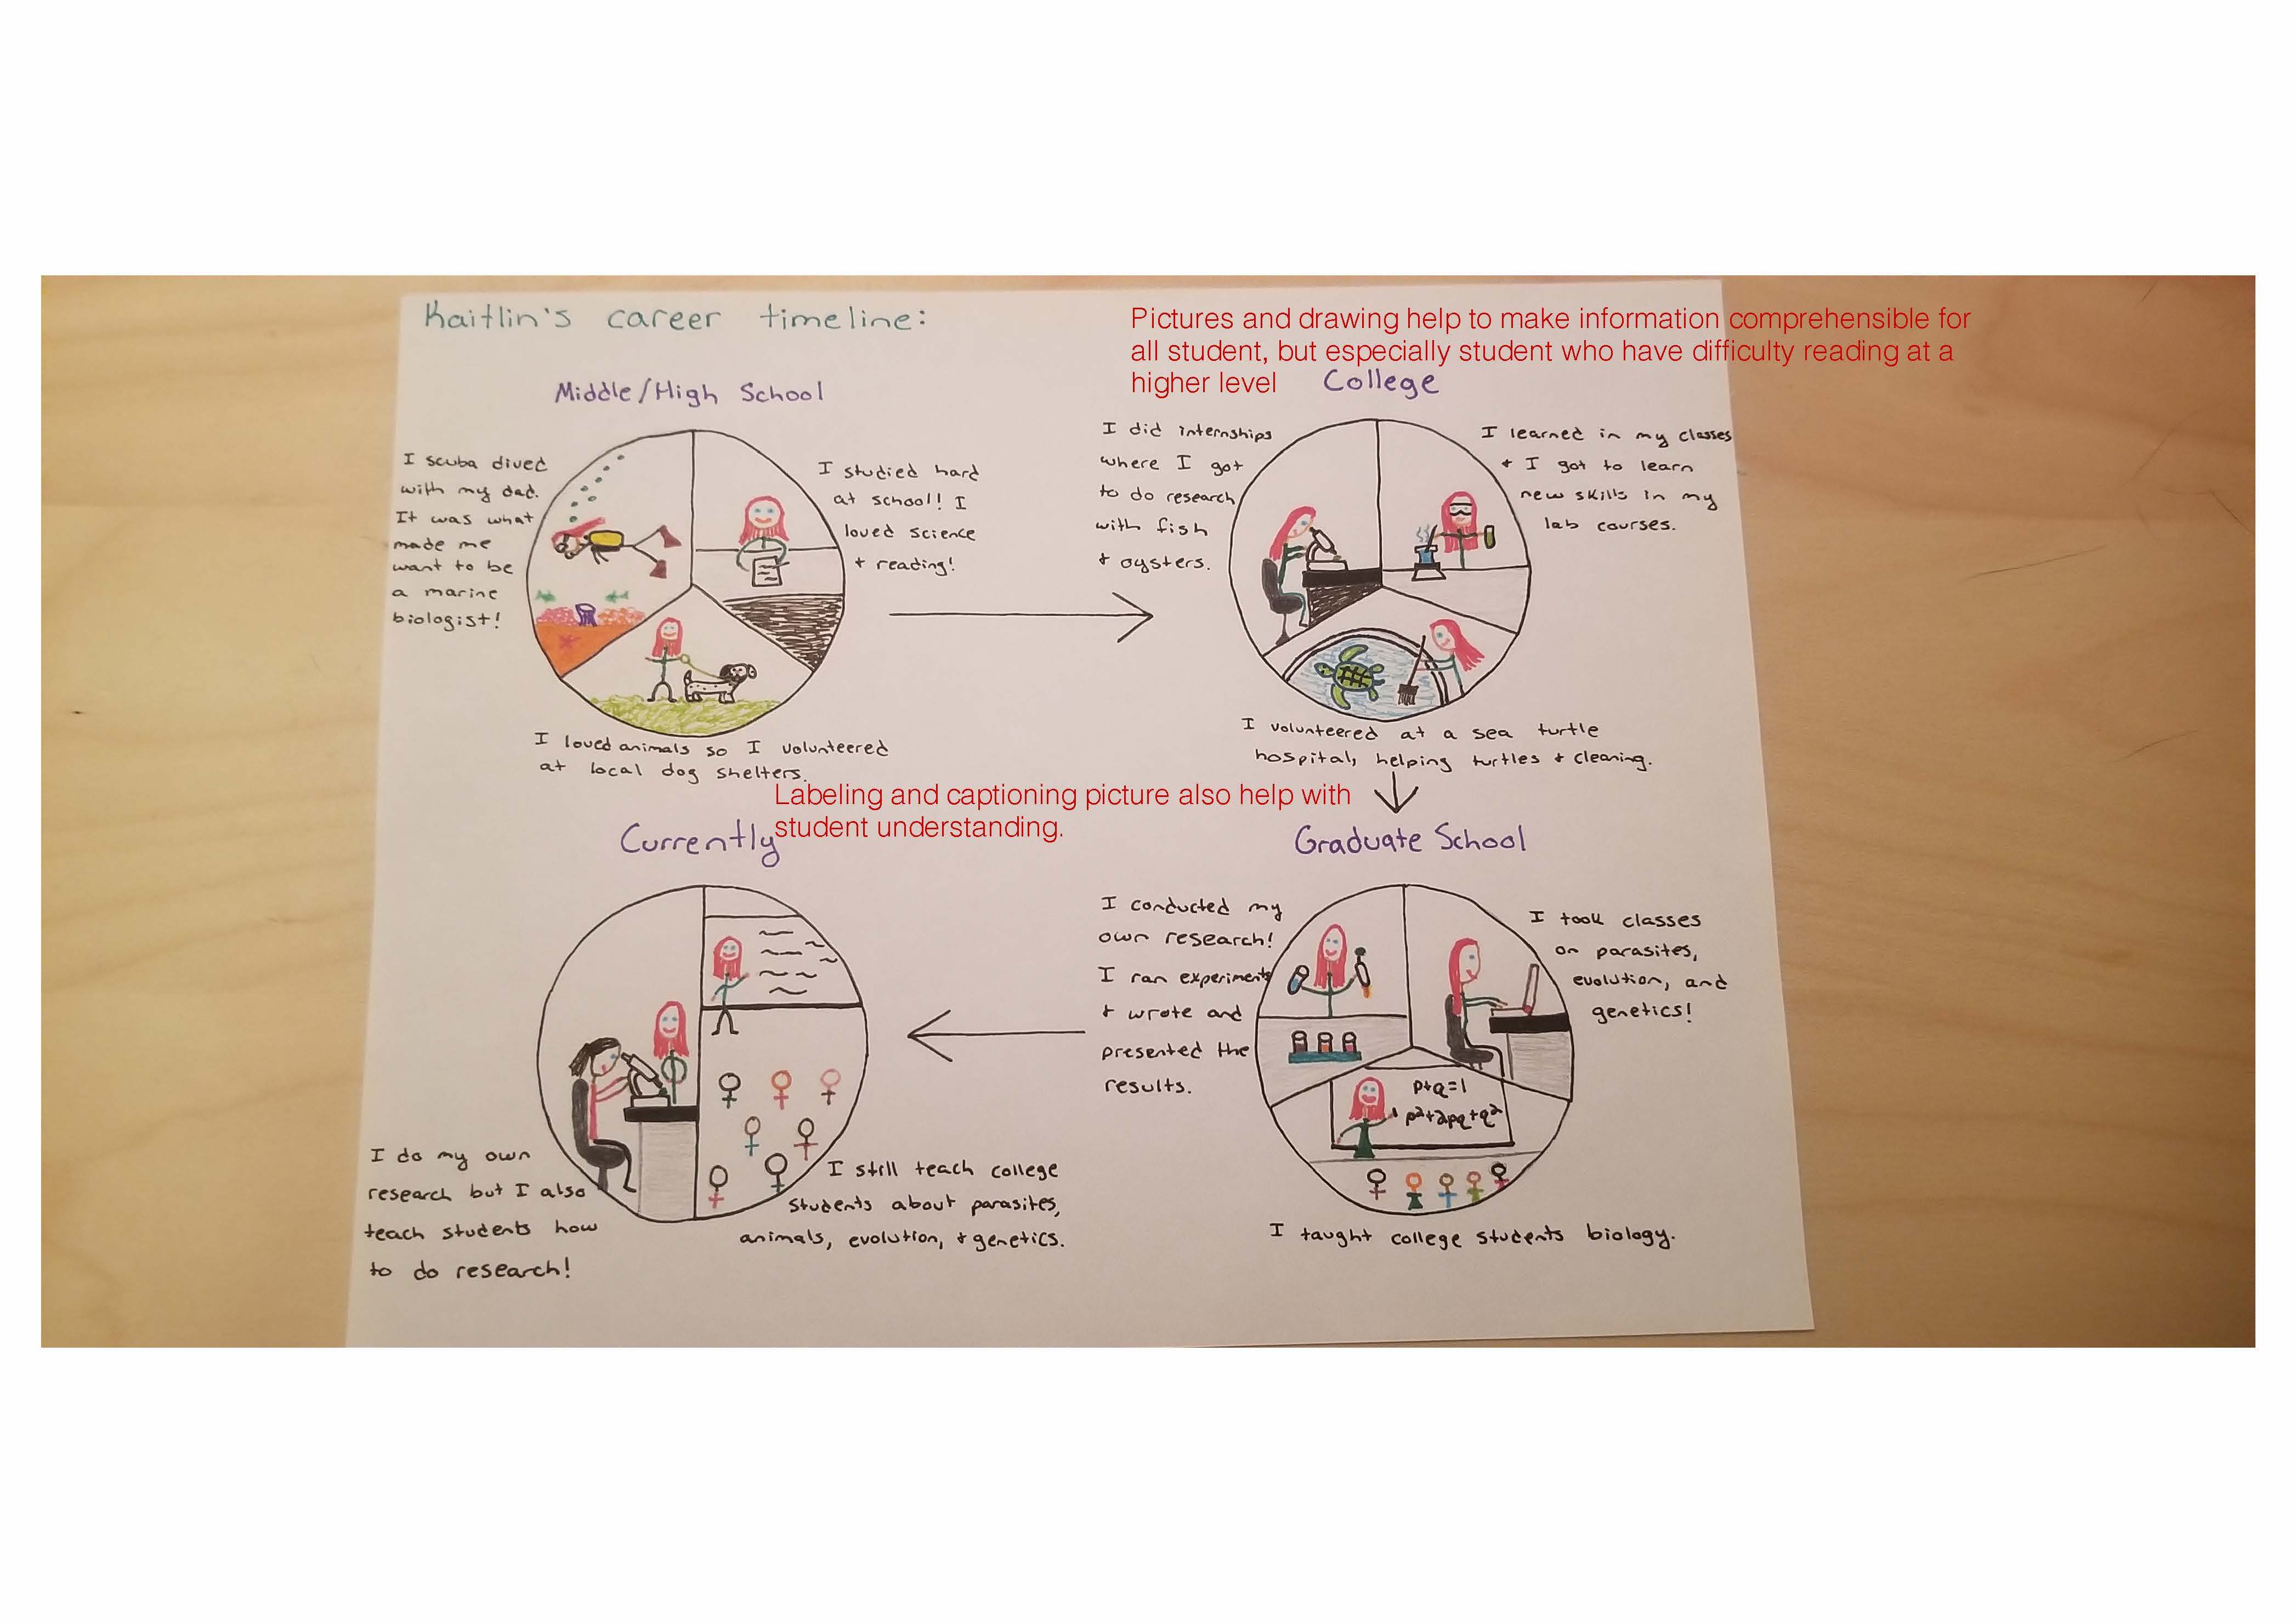 Kaitlin's career timeline:
Pictures and drawing help to make information comprehensible for
all student, but especially student who have difficulty reading at a
higher level
Middle/High School
I scuba dived
with my dad.
It was what
made me
want to be
a marine
biologist!
I studied hard
at school! I
loved science
+ reading!
I loved animals so I volunteered
at local dog shelters.
College
I did internships
where I got
to do research
with fish
+ oysters.
I learned in my classes
+ I got to learn
new skills in my
lab courses.
I volunteered at a sea turtle
hospital, helping turtles + cleaning.
Labeling and captioning picture also help with
student understanding.
Graduate School
I conducted my
own research!
I ran experiments
+ wrote and
presented the
results.
I took classes
on parasites,
evolution, and
genetics!
p+q=1
p²+2pq+q²
I taught college students biology.
Currently
I do my own
research but I also
teach students how
to do research!
I still teach college
students about parasites,
animals, evolution, + genetics.